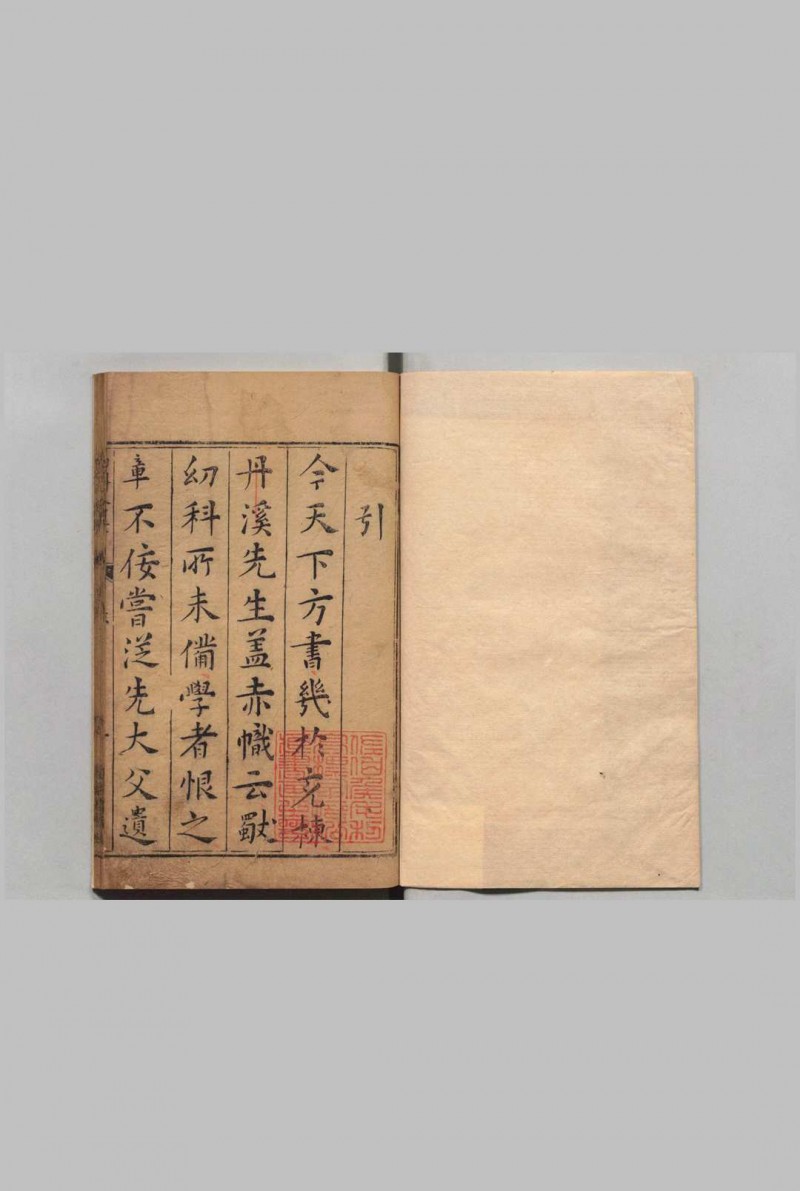 引
今天下方書幾於充棟
丹溪先生盖赤幟云獻
幼科所未備學者恨之
章不佞嘗泛先大父遺